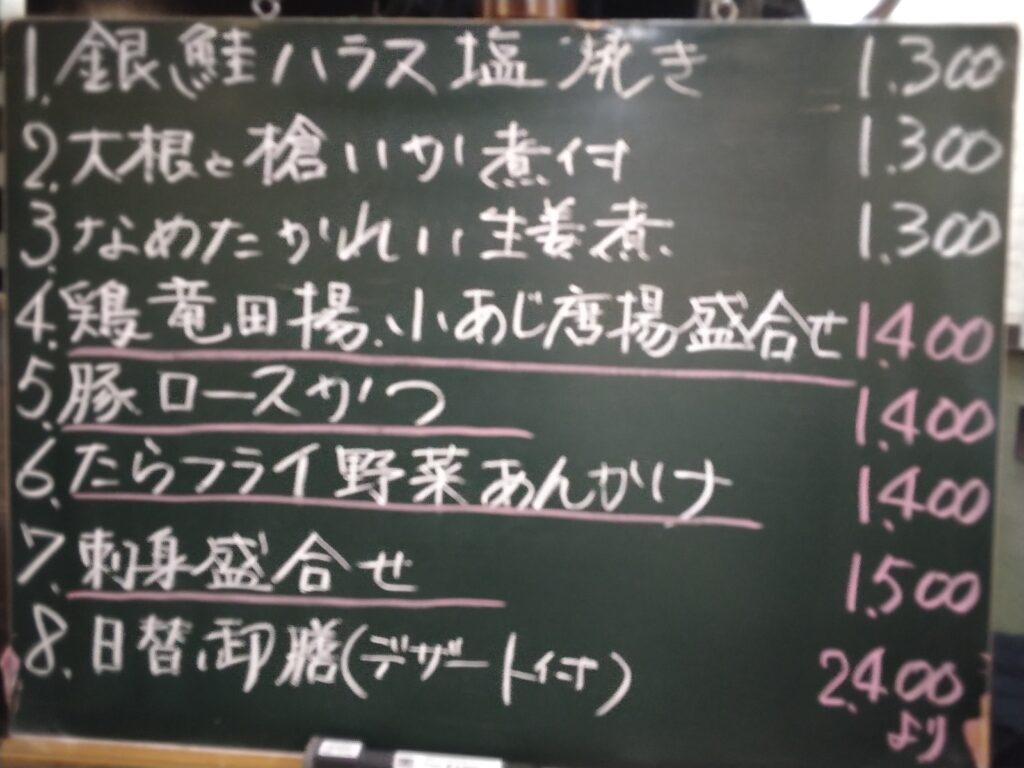 1.銀鮭ハラス塩焼き 1.300
2.大根と槍いか煮付 1.300
3.なめたかれい生姜煮 1.300
4.鶏竜田揚、小あじ唐揚盛合せ 1.400
5.豚ロースかつ 1.400
6.たらフライ野菜あんかけ 1.400
7.刺身盛合せ 1.500
8.日替御膳(デザート付) 2.400
より